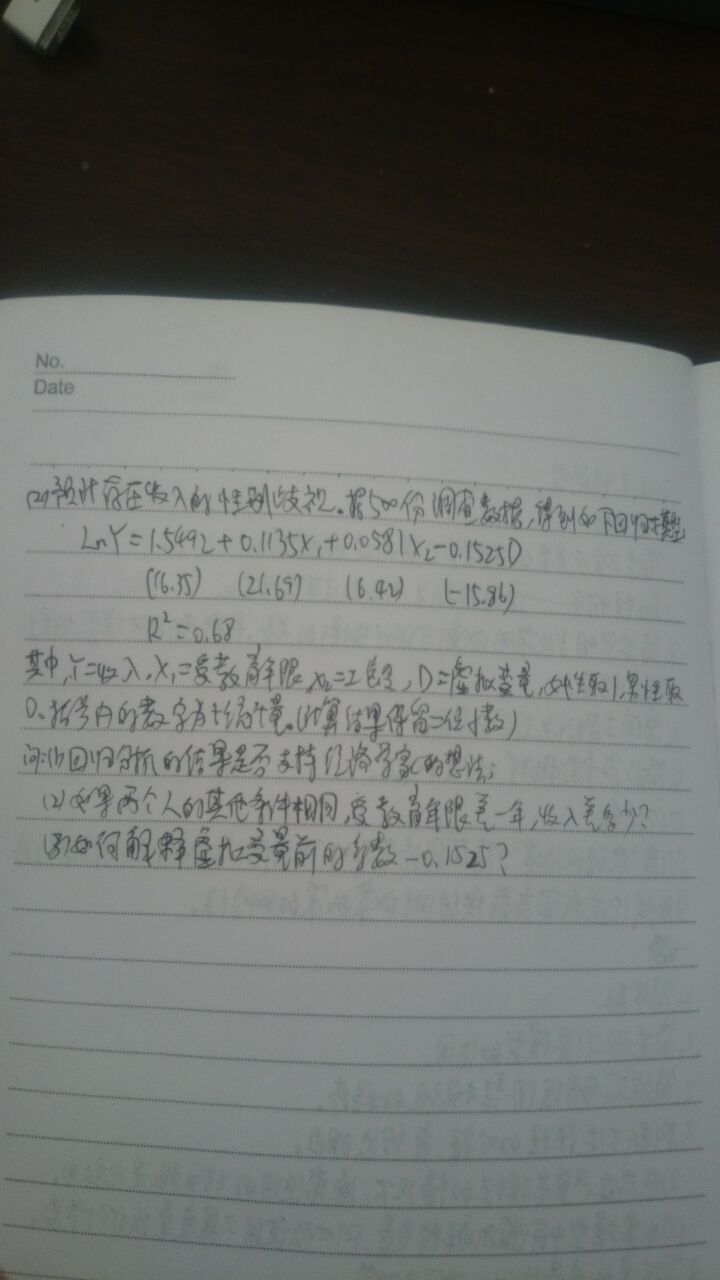 No.
Date
(2)预计存在收入的性别歧视。据500份调查数据,得到如下回归模型
LnY=1.5492+0.1135X1+0.0581X2-0.1525D
(16.35) (21.69) (6.42) (-15.86)
R²=0.68
其中,Y=收入,X1=受教育年限,X2=工龄,D=虚拟变量,女性取1,男性取
0.括号内的数字为t统计量。(计算结果保留二位小数)
问:(1)回归分析的结果是否支持经济学家的想法;
(2)如果两个人的其他条件相同,受教育年限差一年,收入差多少?
(3)如何解释虚拟变量前的系数-0.1525?